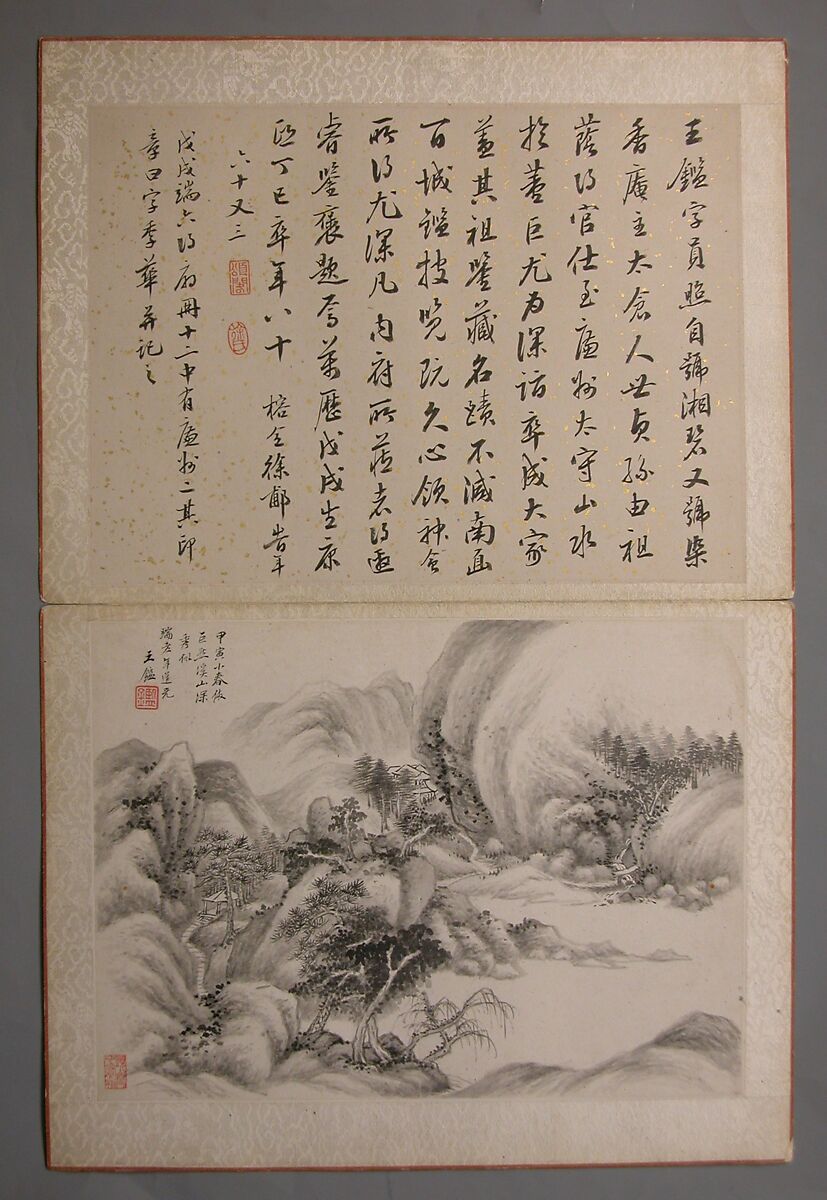 王鑑字員照自號湘碧又號染
香庵主太倉人世貞孫由祖
蔭得官仕至廉州太守山水
於董巨尤為深詣卒成大家
蓋其祖鑒藏名蹟不減南面
百城鑑披覽既久心領神會
所得尤深凡內府所藏者得邀
睿鑒褒題焉萬歷戊戌生康
熙丁巳卒年八十 徐郙旹年
六十又三
頌閣
戊戌端六得扇冊十二中有廉州二其印
章曰字季華并記之
甲寅小春倣
巨然溪山深
秀似
瑞老年道兄
王鑑